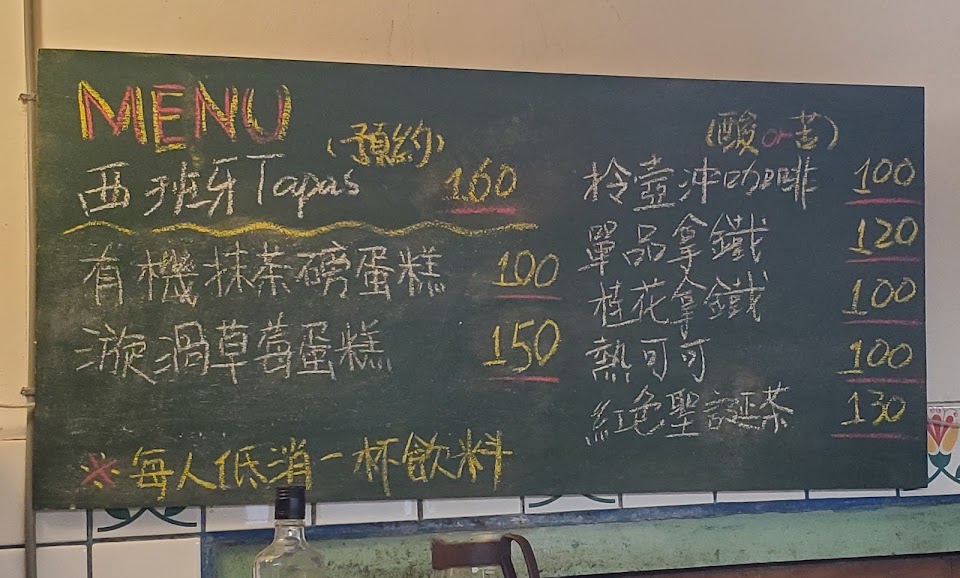 MENU
(預約)
西班牙Tapas 160
有機抹茶磅蛋糕 100
漩渦草莓蛋糕 150
※每人低消一杯飲料
(酸or苦)
拎壺冲咖啡 100
單品拿鐵 120
桂花拿鐵 100
熱可可 100
紅色聖誕茶 130